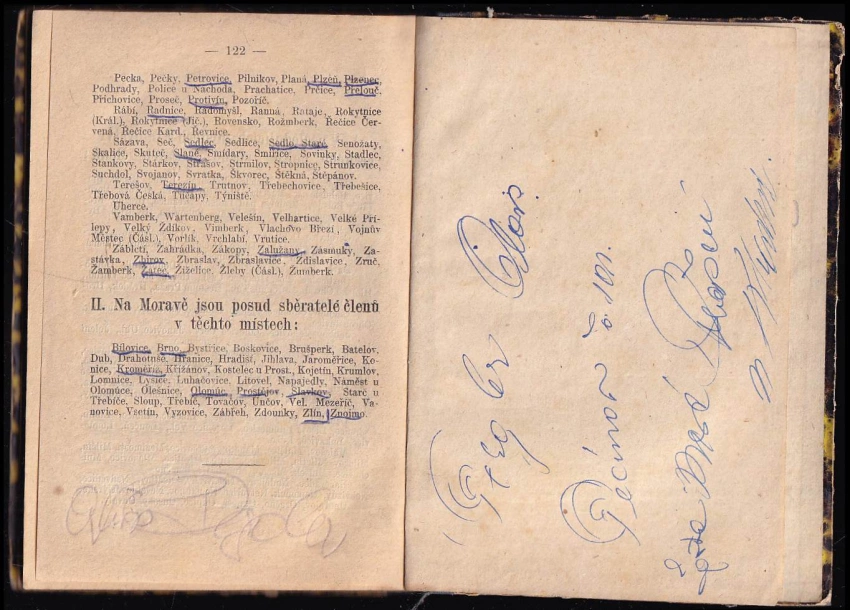 — 122 —
Pecka, Pečky, Petrovice, Pilníkov, Planá, Plzeň, Plzenec,
Podhrady, Police u Náchoda, Prachatice, Prčice, Přelouč,
Příchovice, Proseč, Protivín, Pozořič.
Rábí, Radnice, Radomyšl, Ranná, Rataje, Rokytnice
(Král.), Rokytnice (Jič.), Rovensko, Rožmberk, Řečice Čer-
vená, Řečice Kard., Řevnice.
Sázava, Seč, Sedlec, Sedlice, Sedlo Staré, Senožaty,
Skalice, Skuteč, Slané, Smidary, Smiřice, Sovinky, Stadlec,
Stankovy, Stárkov, Strašov, Strmilov, Stropnice, Strunkovice,
Suchdol, Svojanov, Svratka, Škvorec, Štěkná, Štěpánov.
Terešov, Terezín, Trutnov, Třebechovice, Třebešice,
Třebová Česká, Tučapy, Týniště.
Uherce.
Vamberk, Wartenberg, Velešín, Velhartice, Velké Pří-
lepy, Velký Ždírov, Vimberk, Vlachovo Březí, Vojnův
Městec (Čásl.), Vorlík, Vrchlabí, Vrutice.
Záblctí, Zahrádka, Zákopy, Zalužany, Zásmuky, Za-
stávka, Zbirov, Zbraslav, Zbraslavice, Zdislavice, Zruč,
Žamberk, Žatec, Žiželice, Žleby (Čásl.), Žumberk.
II. Na Moravě jsou posud sběratelé členů
v těchto místech:
Bílovice, Brno, Bystřice, Boskovice, Brušperk, Batelov,
Dub, Drahotuše, Hranice, Hradisť, Jihlava, Jaroměřice, Ko-
nice, Kroměříž, Křižánov, Kostelec u Prost., Kojetín, Krumlov,
Lomnice, Lysice, Luhačovice, Litovel, Napajedly, Náměst u
Olomouce, Olešnice, Olomúc, Prostějov, Slavkov, Starč u
Třebíče, Sloup, Třebíč, Tovačov, Unčov, Vel. Mezeříč, Va-
novice, Vsetín, Vyzovice, Zábřeh, Zdounky, Zlín, Znojmo.